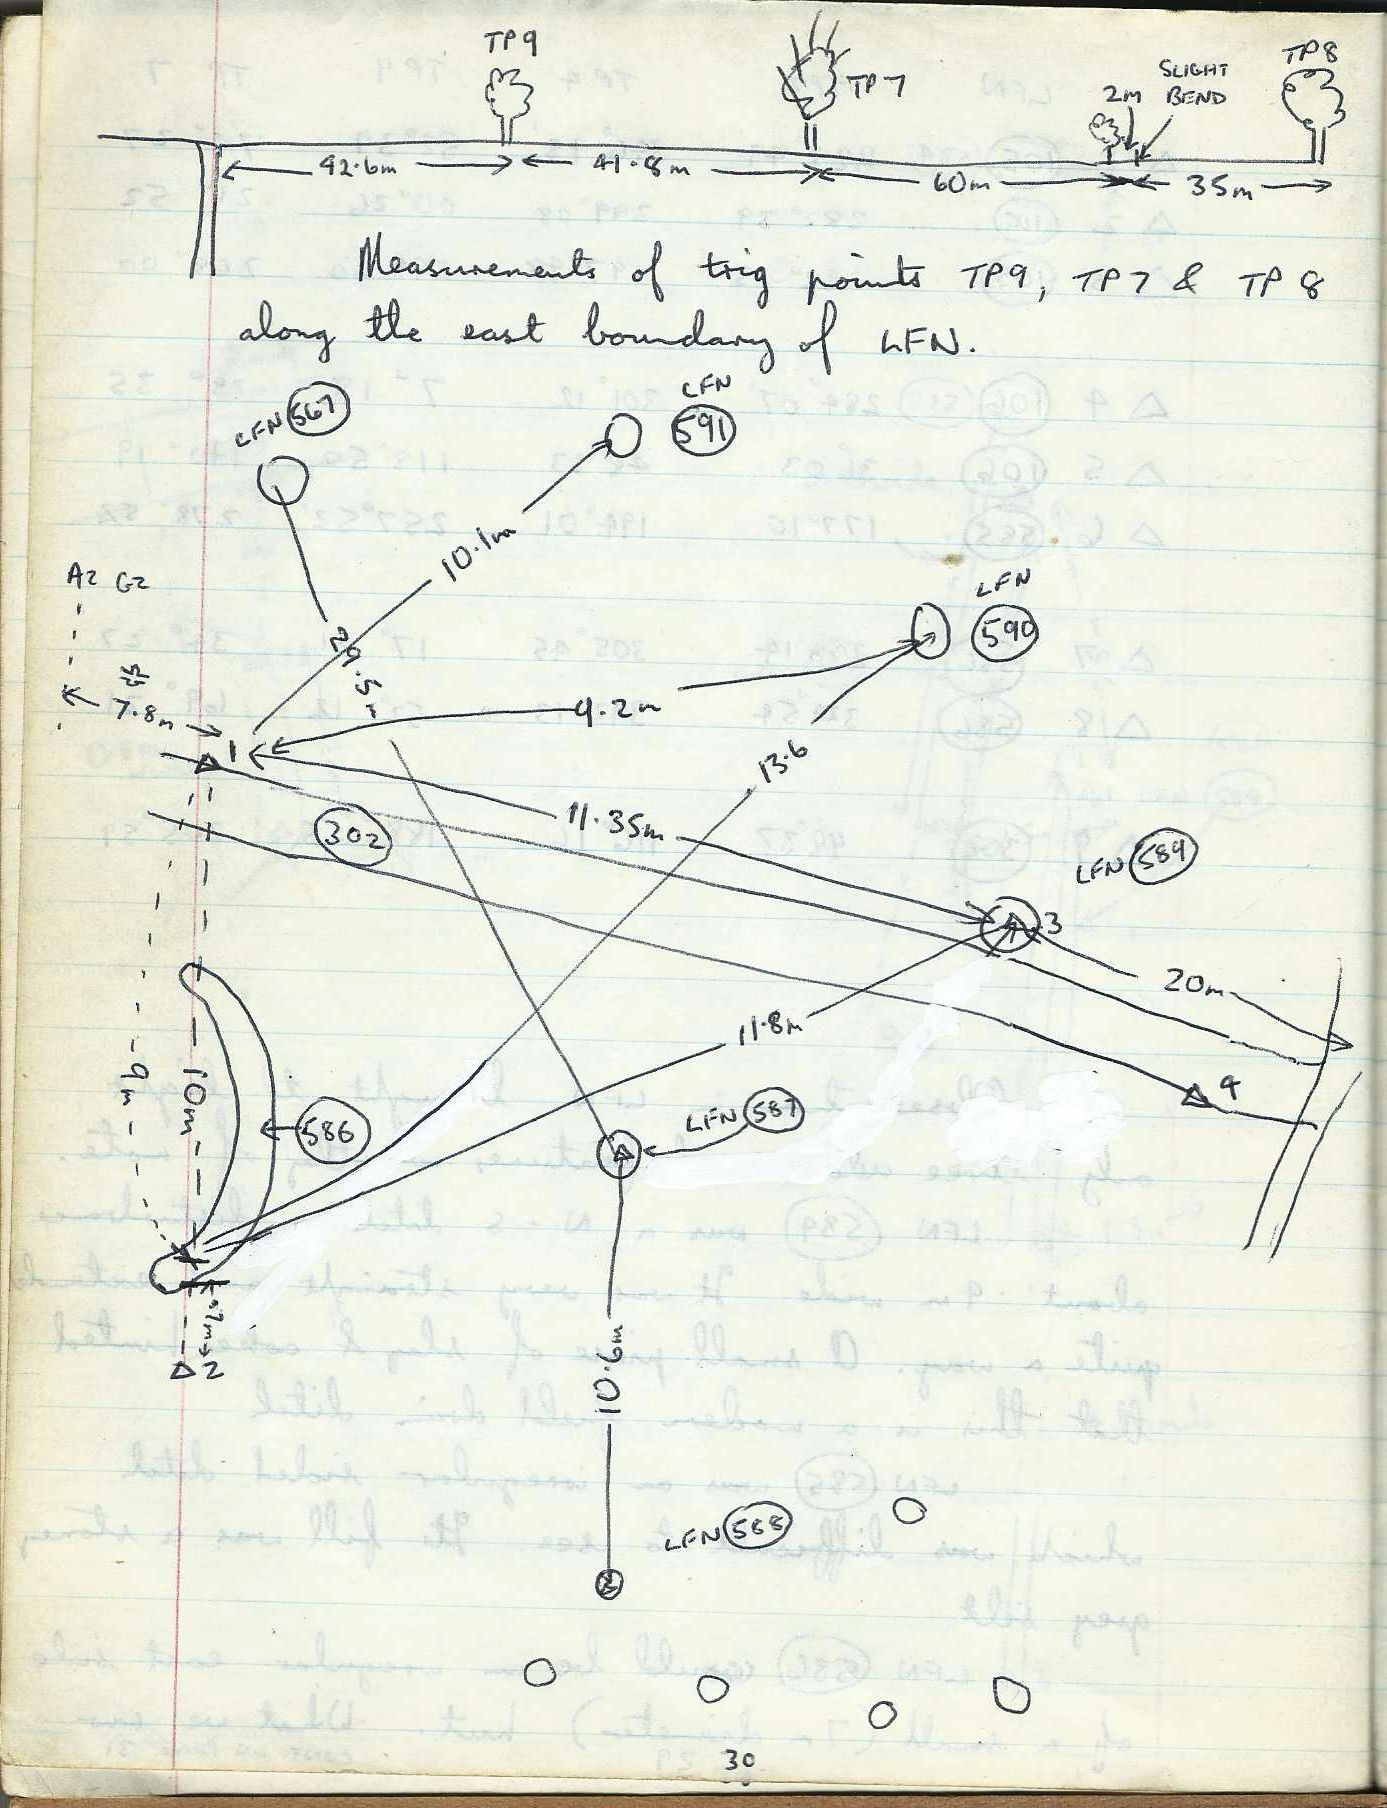 TP9
TP7
2m
SLIGHT
BEND
TP8
42.6m
41.8m
60m
35m
Measurements of trig points TP9, TP7 & TP8
along the east boundary of LFN.
LFN 567
LFN
591
10.1m
A2 G2
LFN
590
29.5m
7.8m
9.2m
1
13.6
11.35m
302
LFN 589
3
20m
11.8m
9m
10m
4
586
LFN 587
2
10.6m
LFN 588
30